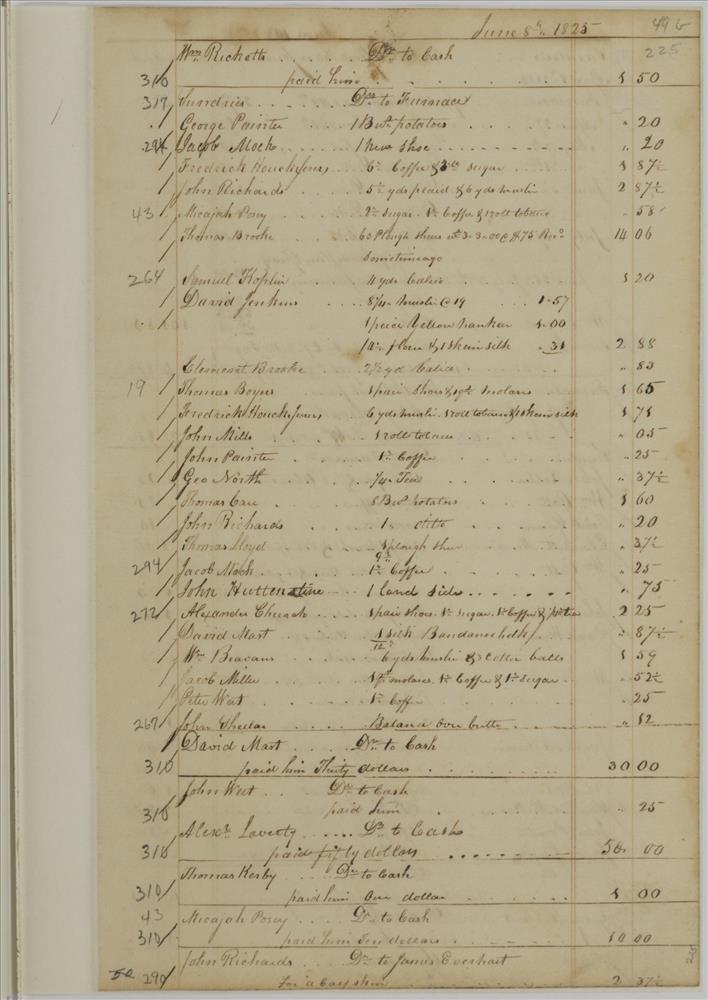 June 8th 1825 49 b
225
Wm Ricketts . . . . . Dr to Cash
310 paid him . . . . . . 1 50
317 Sundries . . . . . Drs to Furnace
George Painter . . . . 1 Bus. potatoes . . . . " 20
294 Jacob Mock . . . . 1 new shoe . . . . . . " 20
Fredrick Houckefsers . . . 6 lb Coffee & sugar . . . 1 87½
John Richards . . . . 5½ yds plaid & 6 yds muslin 2 87½
43 Micajah Posey . . . . 2 lb sugar. 1 lb Coffee & 1 roll tobacco " 58
Thomas Brooke . . . . 60 Plough shears wt 3-3-00 @ $75 14 06
Sometimeago
264 Samuel Hoplin . . . . 4 yds Calico . . . . 1 20
David Jenkins . . . . 8¾ muslin @ 19 . . . 1-57
1 peice Yellow nankee 1-00
flour & 1 skein silk " 31 2 88
Clement Brooke . . . . 2½ yd Calico . . . . " 83
19 Thomas Boyers . . . . 1 pair Shoes & molases . . 1 65
Fredrick Houckefsers . . . 6 yds muslin. 1 roll tobacco & 1 skein silk 1 71
John Mills . . . . 1 roll tobacco . . . . " 05
John Painter . . . . 1 lb Coffee . . . . " 25
Geo North . . . . ¼ Tea . . . . " 37½
Thomas Care . . . . 8 Bus potatoes . . . . 1 60
John Richards . . . . 1 " ditto . . . . " 20
Thomas Lloyd . . . . 1 plough shear . . . . " 37½
294 Jacob Mock . . . . 1 lb Coffee . . . . " 25
John Huttenstine . . . 1 land side . . . . . . " 75
272 Alexander Church . . . 1 pair shoes. 1 lb sugar. 1 lb Coffee & tea 2 25
David Mast . . . . 1 silk Bandana hdkf . . . " 87½
Wm Beavans . . . . 6 yds muslin & 3 Cotton balls 1 59
Jacob Miller . . . . 1 molases. 1 lb Coffee & 1 lb sugar . " 52½
Peter West . . . . 1 lb Coffee . . . . " 25
267 John Sheeler . . . . Balance Over butter . . . " 12
David Mast . . . . Dr to Cash
310 paid him Thirty dollars . . . . 30 00
John West . . . Dr to Cash
310 paid him . . . . . " 25
Alexr Laverty . . . . . Dr to Cash
310 paid fifty dollars . . . . . . 50 00
Thomas Kerby . . . . Dr to Cash
310 paid him One dollar . . . . 1 00
43 Micajah Posey . . . . Dr to Cash
310 paid him Ten dollars . . . . 10 00
John Richards . . . . Dr to James Everhart
50 290 For a Calf skin . . . . 2 37½